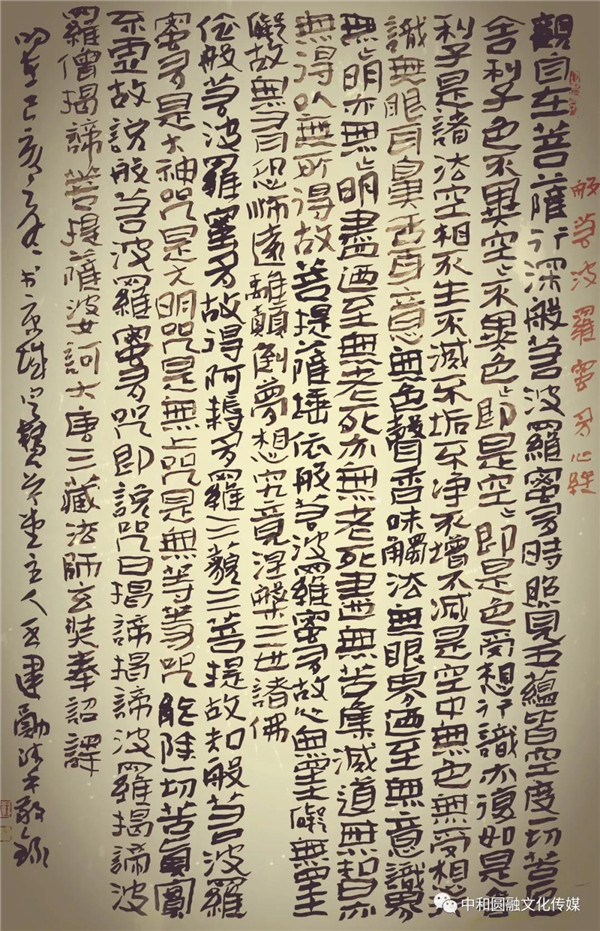 般若波羅蜜多心経
觀自在菩薩行深般若波羅蜜多時照見五蘊皆空度一切苦厄
舍利子色不異空〻不異色〻即是空〻即是色受想行識亦復如是舍
利子是諸法空相不生不滅不垢不净不增不減是空中無色無受想行
識無眼耳鼻舌身意無色聲香味觸法無眼界迺至無意識界
無明亦無明盡迺至無老死亦無老死盡無苦集滅道無智亦
無得以無所得故菩提薩埵依般若波羅蜜多故心無罣礙無罣
礙故無有恐怖遠離顛倒夢想究竟涅槃三世諸佛
依般若波羅蜜多故得阿耨多羅三藐三菩提故知般若波羅
蜜多是大神咒是大明咒是無上咒是無等等咒能除一切苦真實
不虛故說般若波羅蜜多咒即說咒曰揭諦揭諦波羅揭諦波
羅僧揭諦菩提薩婆訶大唐三藏法師玄奘奉詔譯
己亥之书京城堂主人建勋沐手敬録
中和圆融文化传媒